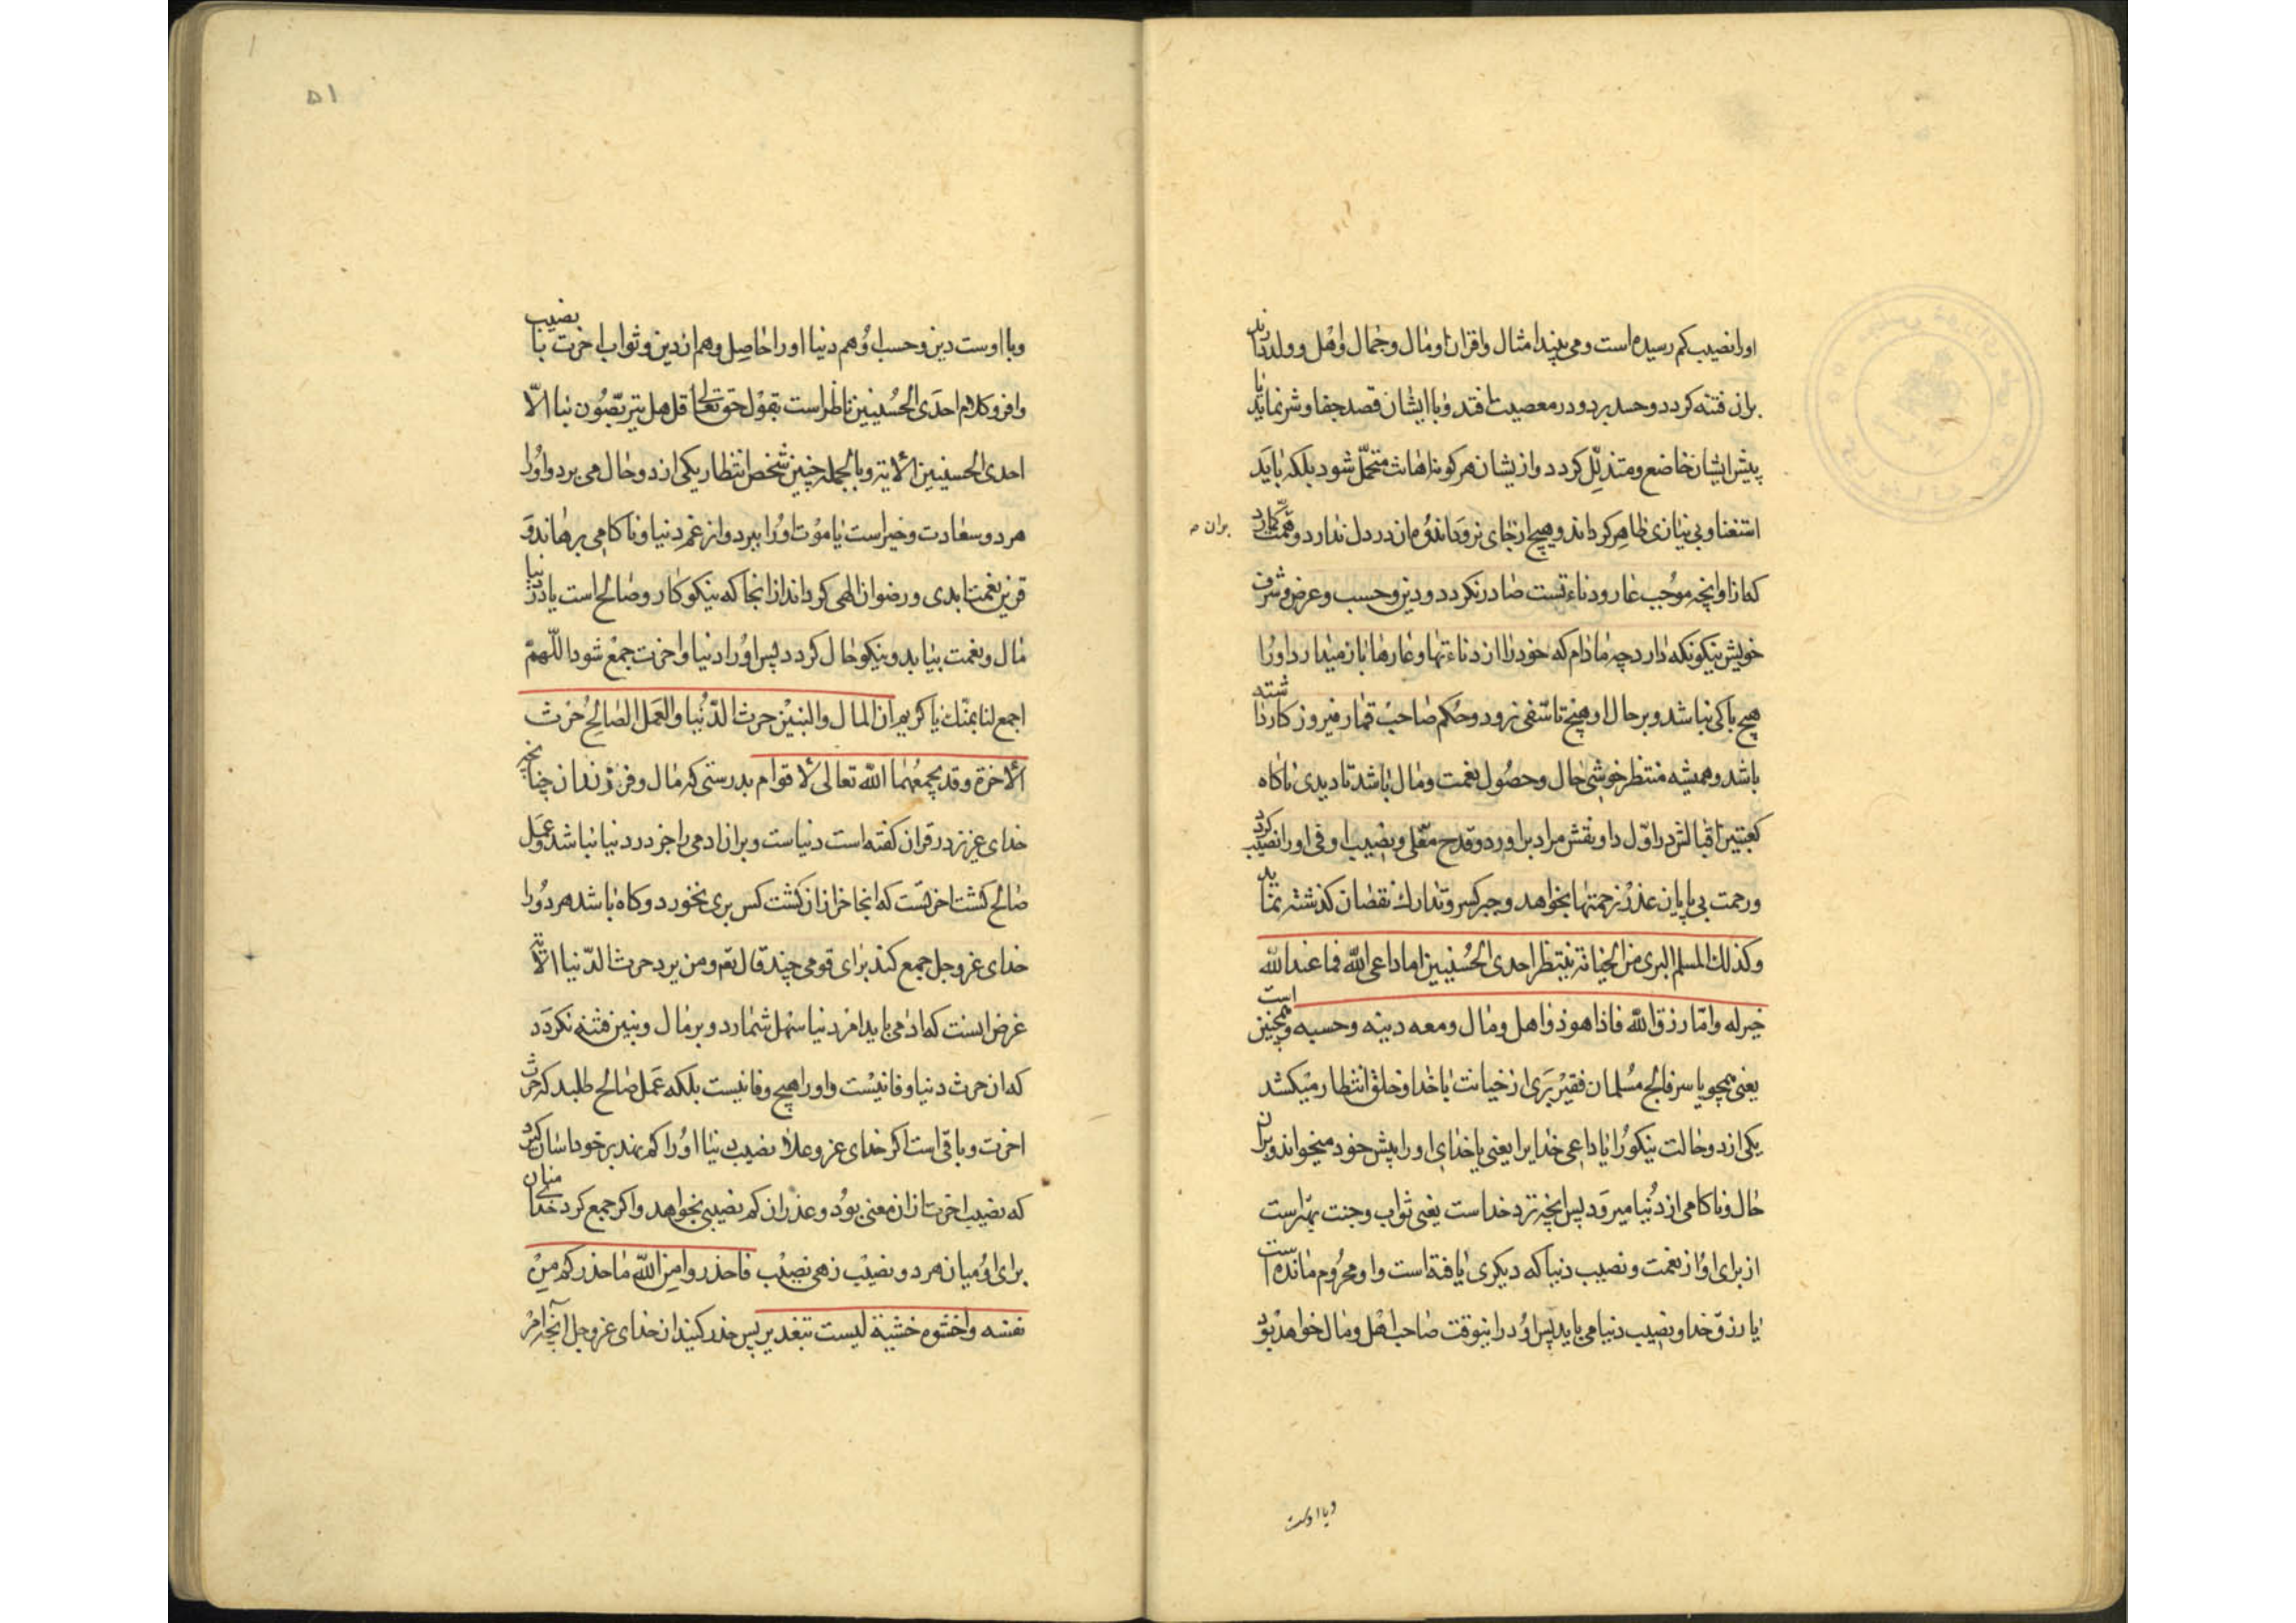 اورا نصیب کم رسیده است و می بیند امثال و اقران او مال و جمال و اهل و ولد دارند
بران فتنه کردد و حسد برد و در معصیت افتد و با ایشان قصد جفا و شر نماید یا
پیش ایشان خاضع و متذلل کردد و از یشان هر کونه اهانت متحمل شود بلکه باید
استغنا و بی نیازی ظاهر کرداند و هیچ از جای نرود اندوه مان در دل ندارد و همت کارد
بران
که ازو انچه موجب عار و دناءتست صادر نکردد و دین و حسب و عرض و شرف
خویش نیکو نکه دارد چه مادام که خود را از دناءتها و عارها باز میدارد اورا
هیچ باکی نباشد و بر حال او هیچ تاسفی نرود و حکم صاحب قمار فیروز کار داشته
باشد و همیشه منتظر خوشی حال و حصول نعمت و مال باشد تا دیدی ناکاه
کعبتین اقبالش در اول داو نقش مراد براورد و قدح معلی و نصیب اوفی اورا نصیب کرد
و رحمت بی پایان عذر زحمتها بخواهد و جبر کسر و تدارک نقصان کذشته نماید
وکذلک المسلم البری من الخیانة ینتظر احدی الحسنیین اما داعی الله فما عند الله
خیر له واما رزق الله فاذا هو ذو اهل ومال ومعه دینه وحسبه و همچنین است
یعنی همچو یاسر فالج مسلمان فقیر بری از خیانت با خدا و خلق انتظار میکشد
یکی از دو حالت نیکو را یا داعی خدا یرا یعنی یا خدای اورا پیش خود میخواند و بران
حال و ناکامی از دنیا میرود پس انچه نزد خداست یعنی ثواب و جنت بهتر است
از برای او از نعمت و نصیب دنیا که دیکری یافته است و او محروم مانده است
یا رزق خدا و نصیب دنیا می یابد پس او در اینوقت صاحب اهل و مال خواهد بود
و با اوست
۵۱
و با اوست دین و حسب او هم دنیا اورا حاصل و هم ان دین و ثواب اخرت با نصیب
وافر و کلام احدی الحسنیین ناظر است بقول حق تعالی قل هل تربصون بنا الا
احدی الحسنیین الایة و بالجمله چنین شخص انتظار یکی از دو حال می برد و اورا
هر دو سعادت و خیر است یا موت اورا ببرد و از غم دنیا و ناکامی برهاند و
قرین نعمت ابدی و رضوان الهی کرداند از انجا که نیکو کار و صالح است یا در دنیا
مال و نعمت بیابد و نیکو حال کردد پس اورا دنیا و اخرت جمع شود اللهم
اجمع لنا بمنک یا کریم ان المال والبنین حرث الدنیا والعمل الصالح حرث
الاخرة وقد یجمعهما الله تعالی لاقوام بدرستی که مال و فرزندان چنانچه
خدای عزیز در قران کفته است دنیاست و بر ان ادمی را جز در دنیا نباشد و عمل
صالح کشت اخرتست که انجا خر ازان کشت کس بری نخورد و کاه باشد هر دو را
خدای عز و جل جمع کند برای قومی چند قال تع و من یرد حرث الدنیا الایة
غرض اینست که ادمی باید امر دنیا سهل شمارد و بر مال و بنین فتنه نکردد
که ان حرث دنیا و فانیست و اورا هیچ وفا نیست بلکه عمل صالح طلبد که حرث
اخرت و باقی است اکر خدای عز و علا نصیب دنیا اورا کم نهد بر خود اسان کیرد
که نصیب اخرت ازان معنی بود و عذر ان کم نصیبی بخواهد و اکر جمع کرد خدا منان
برای او میان هر دو نصیب زهی نصیب فاحذروا من الله ما حذرکم من
نفسه واخشوه خشیة لیست بتعذیر پس حذر کنید از خدای عز و جل آنچه امر